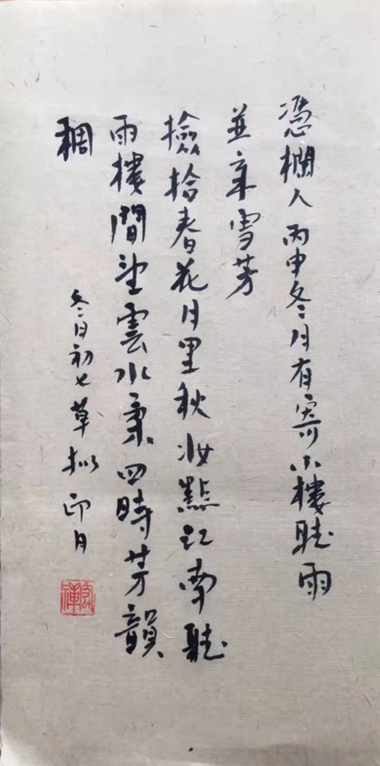 憑欄人 丙申冬月有寄小樓聽雨
並雪芳
撿拾春花月里秋妝點江南聽
雨樓間望雲水柔四時芳韻
稠
冬月初七草拟印月